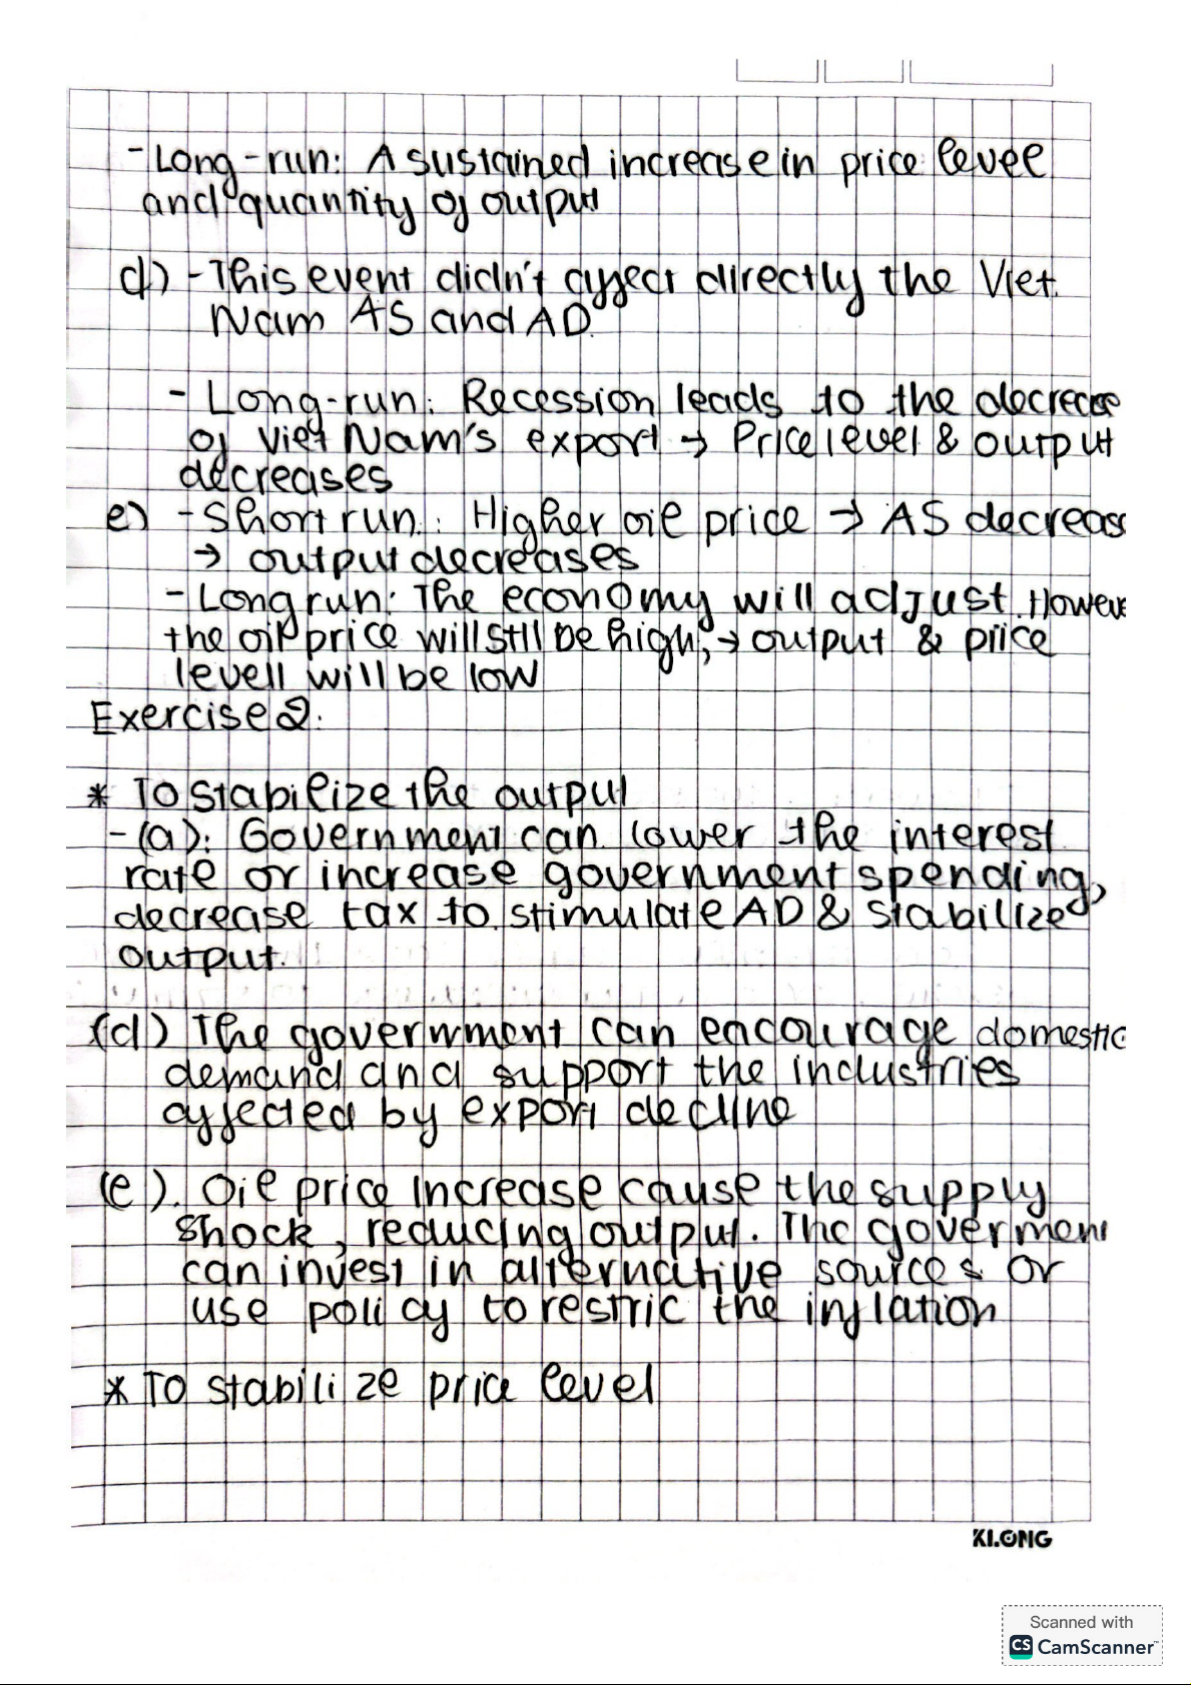 - Long-run: A sustained increase in price level
and quantity of output
d) - This event didn't affect directly the Viet
Nam AS and AD.
- Long-run: Recession leads to the decrease
of Viet Nam's export → Price level & output
decreases
e) - Short run: Higher oil price → AS decreas
→ output decreases
- Long run: The economy will adjust. Howeve
the oil price will still be high, → output & price
levell will be low
Exercise 2:
* To stabilize the output
- (a): Government can lower the interest
rate or increase government spending,
decrease tax to stimulate AD & stabilize
output.
(d) The government can encourage domestic
demand and support the industries
affected by export decline
(e). Oil price increase cause the supply
shock, reducing output. The goverment
can invest in alternative sources or
use policy to restric the inflation
* To stabilize price level
KLONG
Scanned with
CS CamScanner